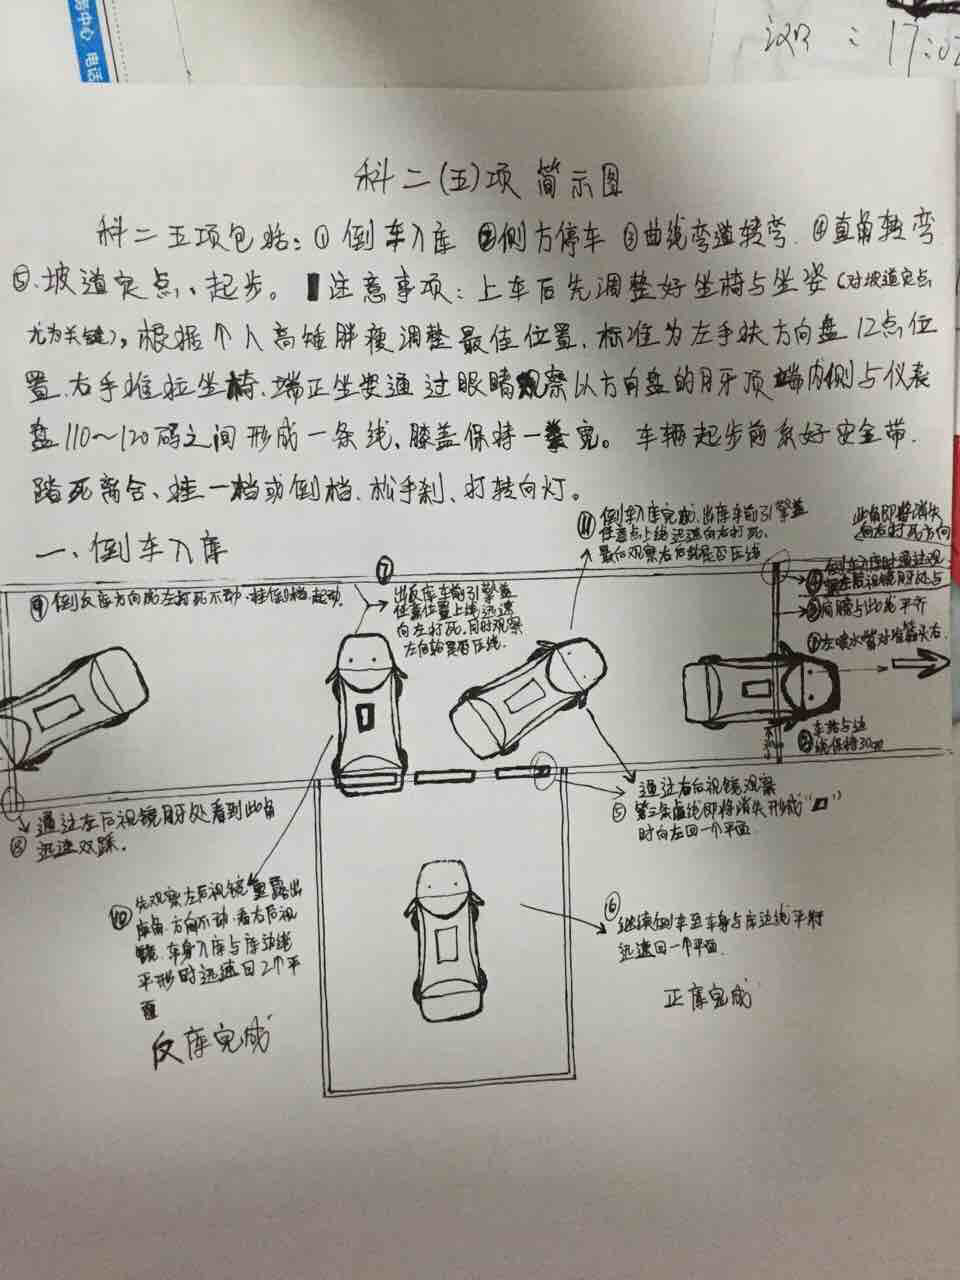 中心 电话
:17:02
科二(五)项 简示图
科二五项包括:①倒车入库 ②侧方停车 ③曲线弯道转弯.④直角转弯
⑤.坡道定点、起步。注意事项:上车后先调整好坐椅与坐姿(对坡道定点
尤为关键),根据个人高矮胖瘦调整最佳位置.标准为左手扶方向盘12点位
置.右手推拉坐椅.端正坐姿通过眼睛观察以方向盘的月牙顶端内侧与仪表
盘110~120码之间形成一条线、膝盖保持一拳宽。车辆起步前系好安全带.
踏死离合、挂一档或倒档.松手刹、打转向灯。
一、倒车入库
⑪ 倒车入库完成.出库车前引擎盖
任意点上线迅速向右打死.
最向观察右后轮是否压线
此角即将消失
向右打死方向
倒车入库时通过观
察左后视镜月牙处与
③肩膀与此线平齐
①左喷水嘴对准箭头右.
②车站与边
线保持30cm
不30cm
⑨倒反库方向先左打死不动.挂倒档起动.
⑦
出反库车前引擎盖
任意位置上线迅速
向左打死.同时观察
左向轮是否压线.
⑧ 通过左后视镜月牙处看到此角
迅速双踩.
⑤ 通过右后视镜观察
第三条虚线即将消失形成“ ”
时向左回一个平面.
⑥ 继续倒车至车身与库边线平形
迅速回一个平面.
正库完成
⑩ 先观察左后视镜 露出
库角.方向不动.看右后视
镜.车身入库与库边线
平形时迅速回2个平
面
反库完成